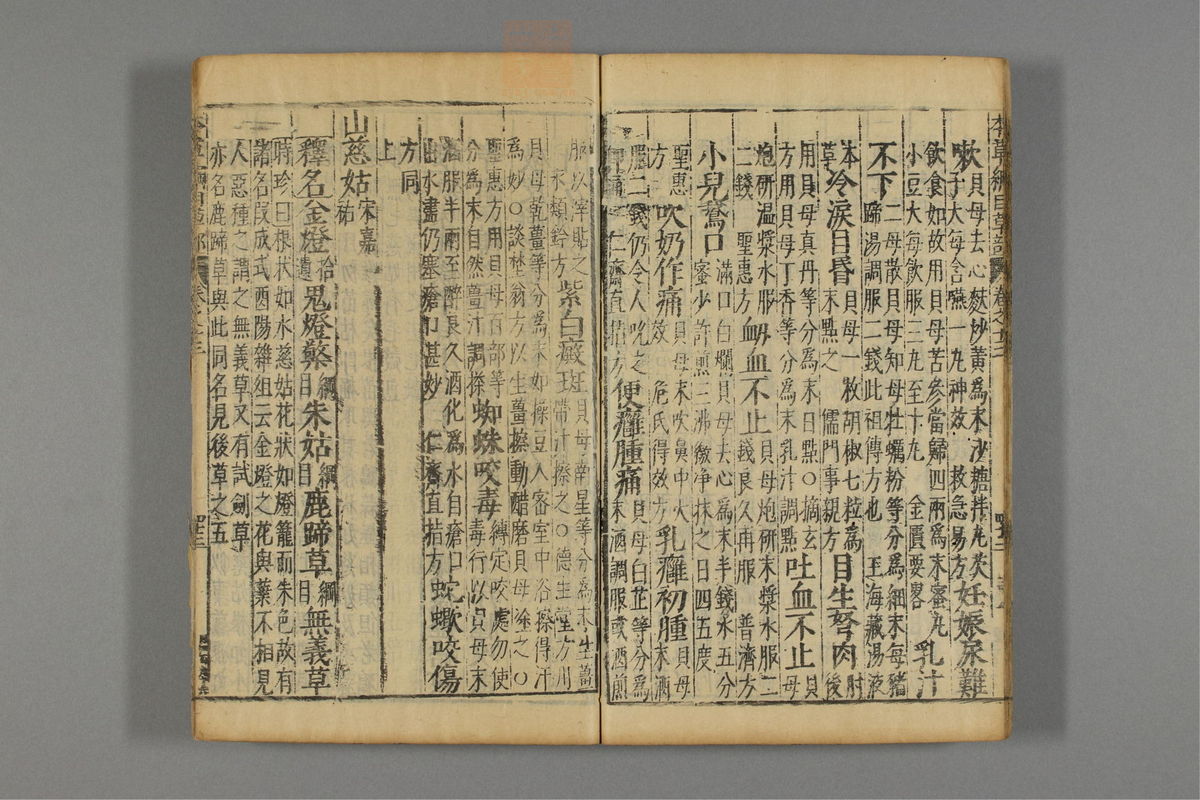 本草綱目草部 卷之十三
嗽貝母去心麩炒黃為末沙糖拌丸芡
子大每含嚥一丸神效 救急易方 妊娠尿難
飲食如故用貝母苦參當歸四兩為末蜜丸
小豆大每飲服三丸至十丸 金匱要畧 乳汁
不下二母散貝母知母牡蠣粉等分為細末每豬
蹄湯調服二錢此祖傳方也 王海藏湯液
本草 冷淚目昏貝母一枚胡椒七粒為
末點之 儒門事親方 目生弩肉肘後
用貝母真丹等分為末日點○摘玄
方用貝母丁香等分為末乳汁調點 吐血不止貝母
炮研溫漿水服
二錢 聖惠方 衄血不止貝母炮研末漿水服二
錢良久再服 普濟方
小兒鵞口滿口白爛貝母去心為末半錢水五分
蜜少許煎三沸緻淨抹之日四五度
聖惠方 吹奶作痛貝母末吹鼻中大
效 危氏得效方 乳癰初腫貝母末酒
服二錢仍令人吮之
即通 仁齋直指方 便癰腫痛貝母白芷等分為
末酒調服或酒煎
服以滓貼之
永類鈐方 紫白癜斑貝母南星等分為末生薑
帶汁擦之○德生堂方用
貝母乾薑等分為末如澡豆入密室中浴擦得汗
為妙○談埜翁方以生薑擦動醋磨貝母塗之○
聖惠方用貝母百部等
分為末自然薑汁調搽 蜘蛛咬毒縛定咬處勿使
毒行以貝母末
酒服半兩至醉良久酒化為水自瘡口
出水盡仍塞瘡口甚妙 仁齋直指方 蛇蠍咬傷
方同上
山慈姑宋嘉祐
釋名金燈拾遺鬼燈檠綱目朱姑綱目鹿蹄草綱目無義草
時珍曰根狀如水慈姑花狀如燈籠而朱色故有
諸名段成式酉陽雜俎云金燈之花與葉不相見
人惡種之謂之無義草又有試劍草
亦名鹿蹄草與此同名見後草之五